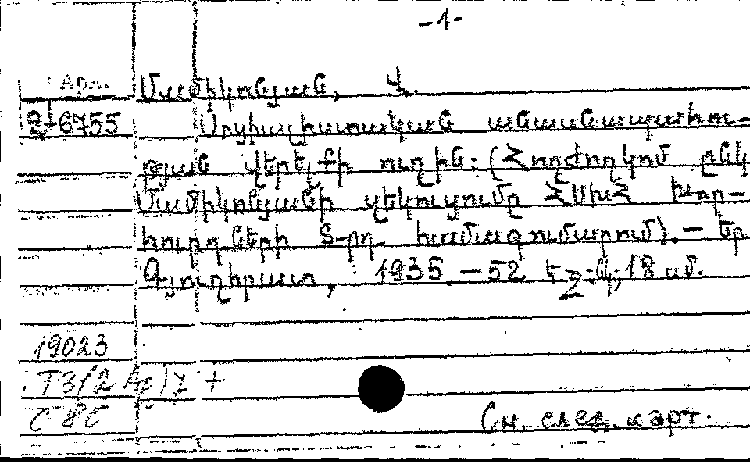 -1-
Арм.
Մամիկոնյան, Վ.
2-6755 Սոցիալիստական անասնապահու-
թյան վերելքի ուղին: (Հողժողկոմ ընկ
Մամիկոնյանի զեկուցումը ՀՍԽՀ խոր-
հուրդների 8-րդ համագումարում). — Եր
Գյուղհրատ, 1935. — 52 էջ: գ, 18 սմ.
19023
Т3(2 Ар)7 +
С 8С
См. след. карт.